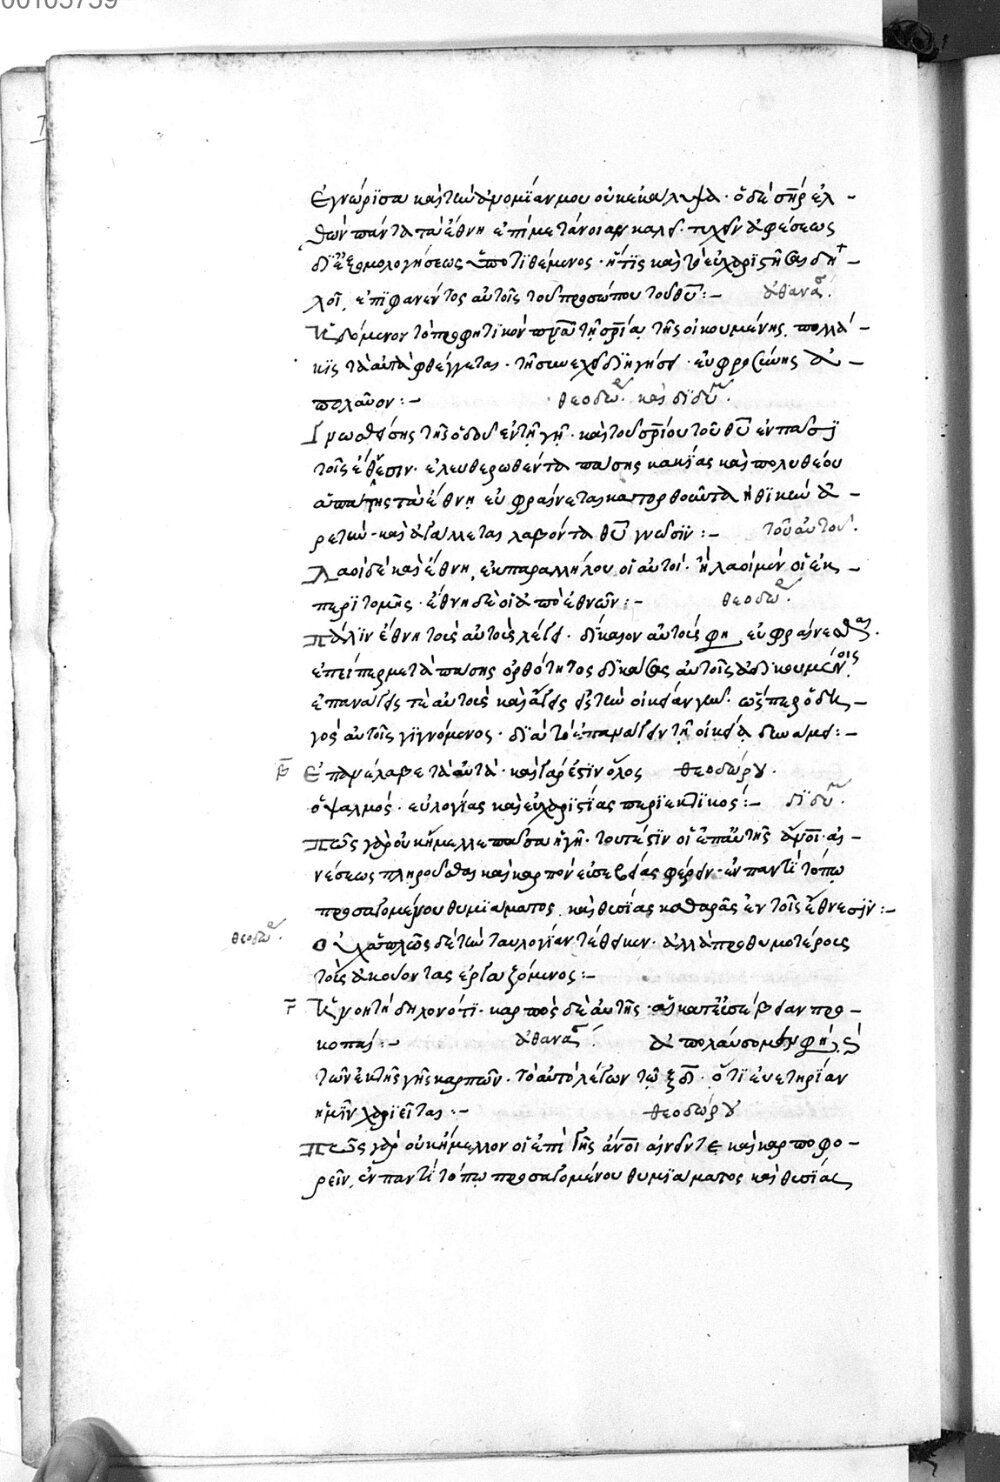 00105759
Ἐγνώρισα καὶ τὴν ἀνομίαν μου οὐκ ἐκάλυψα· ὁ δὲ σηρ ἐλ-
θὼν πάντα τὰ ἔθνη ἐπὶ μετάνοιαν καλεῖ· τυχεῖν ἀφέσεως
δι' ἐξομολογήσεως ὑποτιθέμενος· ἥτις καὶ τὸ εὐχαριστῆσαι δη-
λοῖ, ἐπιφανέντος αὐτοῖς τοῦ προσώπου τοῦ θυ:- ἀθανασ.
Κηδόμενον τὸ προφητικὸν πνα τῆς σρίας τῆς οἰκουμένης, πολλά-
κις τὰ αὐτὰ φθέγγεται· τῇ συνεχεῖ διηγήσει· εὐφροσύνης ἀ-
πολαῦον:- θεοδω. καὶ διδυ.
Γνωσθείσης τῆς ὁδοῦ ἐν τῇ γῇ· καὶ τοῦ σρίου τοῦ θυ ἐν πᾶσι
τοῖς ἔθνεσιν· ἐλευθερωθέντα πάσης κακίας καὶ πολυθέου
ἀπάτης τὰ ἔθνη εὐφραίνεται κατορθοῦντα ἠθικὴν ἀ-
ρετήν· καὶ ἀγάλλεται λαβόντα θυ γνῶσιν:- τοῦ αὐτοῦ.
Λαοὶ δὲ καὶ ἔθνη, ἐκ παραλλήλου οἱ αὐτοί· ἢ λαοὶ μὲν οἱ ἐκ
περιτομῆς· ἔθνη δὲ οἱ ἀπὸ ἐθνῶν:- θεοδω.
Πάλιν ἔθνη τοὺς αὐτοὺς λέγει· δίκαιον αὐτούς φη, εὐφραίνεσθαι.
ἐπείπερ μετὰ πάσης ὀρθότητος δικάσας αὐτοῖς ἀδικουμένοις,
ἐπανάγεις τε αὐτοὺς καὶ ἄγεις εἰς τὴν οἰκείαν γῆν· ὥσπερ ὁδη-
γὸς αὐτοῖς γιγνόμενος· διὰ τὸ ἐπαναγαγεῖν τῇ οἰκείᾳ δυνάμει:-
β Ἐπανέλαβε τὰ αὐτά· καὶ γάρ ἐστιν ὅλος θεοδώρου.
ὁ ψαλμός· εὐλογίας καὶ εὐχαριστίας περιεκτικός:- διδυ.
Πῶς γὰρ οὐκ ἤμελλε πᾶσα ἡ γῆ· τουτέστιν οἱ ἐπ' αὐτῆς ἄνοι· αἰ-
νέσεως πληροῦσθαι καὶ καρπὸν εὐσεβείας φέρειν· ἐν παντὶ τόπῳ
προσαγομένου θυμιάματος, καὶ θυσίας καθαρᾶς ἐν τοῖς ἔθνεσιν:-
θεοδω. Οὐχ ἁπλῶς δὲ τὴν ταυλογίαν τέθεικεν· ἀλλὰ προθυμοτέρους
τοὺς ἀκούοντας ἐργαζόμενος:-
γ Κἂν οητὴ δηλονότι· καρπὸς δὲ αὐτῆς· αἱ κατ' εὐσέβειαν προ-
κοπαί:- ἀθανασ. ἀπολαύσομεν φησὶ
τῶν ἐκ τῆς γῆς καρπῶν· τὸ αὐτὸ λέγων τῷ ξδ· ὅτι εὐετηρίαν
ἡμῖν χαριεῖται:- θεοδώρου
Πῶς γὰρ οὐκ ἤμελλον οἱ ἐπὶ γῆς ἄνοι αἰνεῖν τε καὶ καρποφο-
ρεῖν, ἐν παντὶ τόπῳ προσαγομένου θυμιάματος καὶ θυσίας